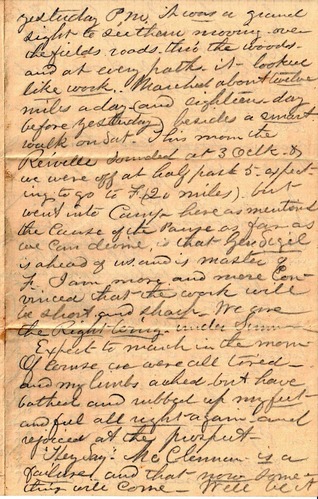 yesterday P.M. It was a grand
sight to see them moving over
the fields, roads, thro the woods
and at every path it looked
like work. Marched about twelve
miles a day (and eighteen day
before yesterday) besides a smart
walk on Sat. This morn the
Reveille sounded at 3 Oclk &
we were off at half past 5 expec
ting to go to F (20 miles), but
went into Camp here as mentiond
the Cause of the Pause as far as
we can divine, is that Genl Sigel
is ahead of us and is master of
F. I am more and more Con
vinced that the work will
be short, and sharp. We are
the Right Wing under
Expect to march in the morn
Of course we were all tired
and my limbs ached but have
bathed and rubbed up my feet
and feel all right again and
rejoiced at the prospect
They say McClennan is a
failure and that now Some-
thing will come